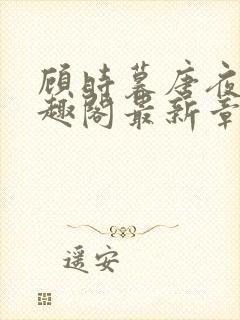 顾时暮唐夜
趣阁最新章
遥安